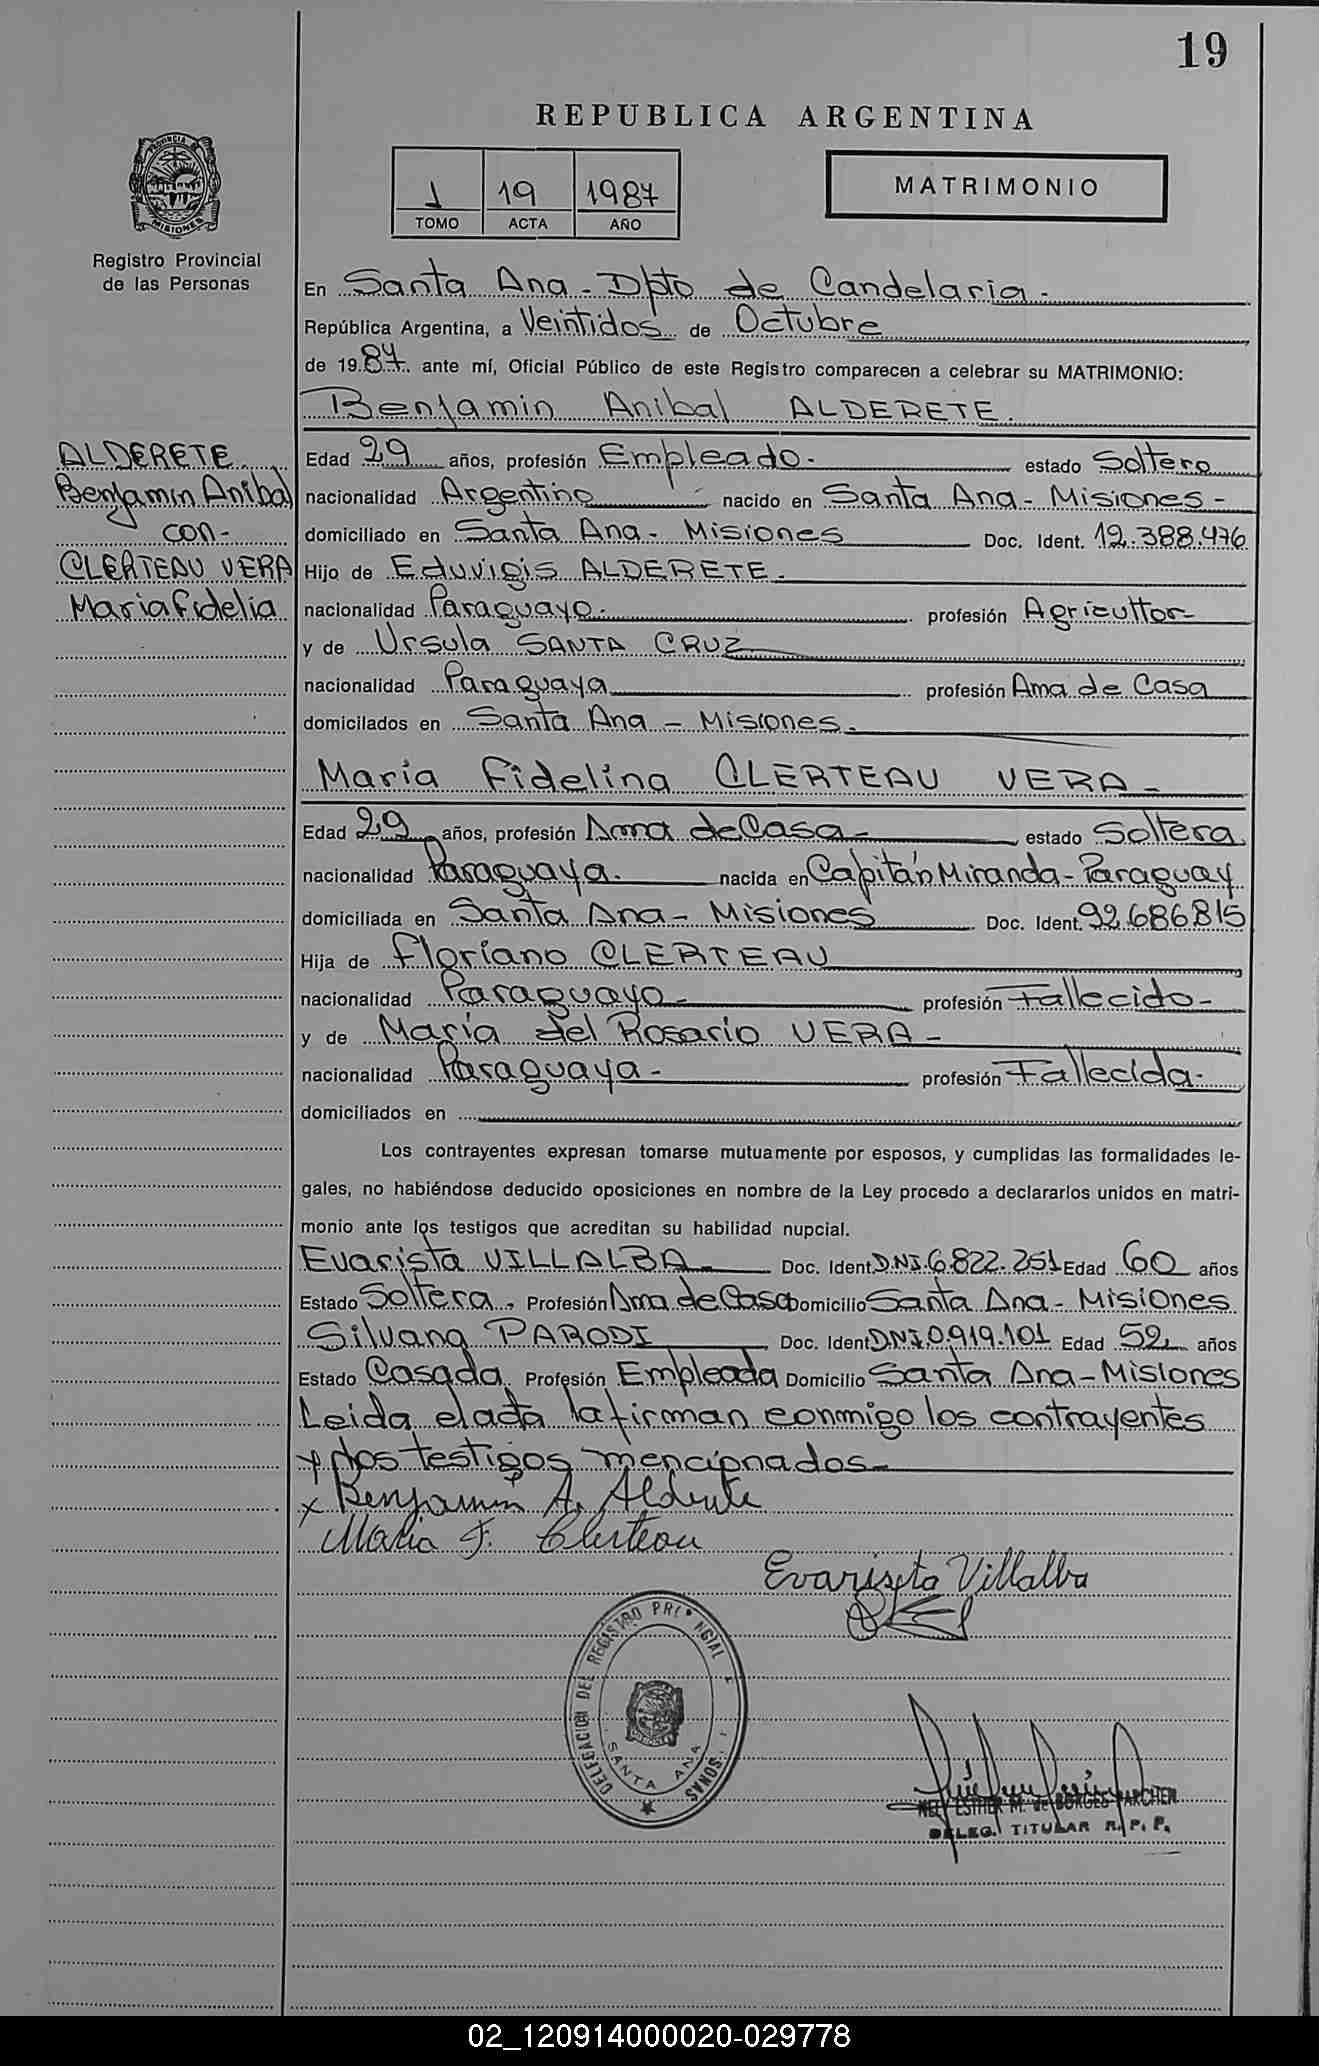 19
REPUBLICA ARGENTINA
1 19 1987
TOMO ACTA AÑO
MATRIMONIO
PROVINCIA DE
MISIONES
Registro Provincial
de las Personas
En Santa Ana - Dpto de Candelaria -
República Argentina, a Veintidos de Octubre
de 1987. ante mí, Oficial Público de este Registro comparecen a celebrar su MATRIMONIO:
Benjamin Anibal ALDERETE.
ALDERETE
Benjamin Anibal
con-
CLERTEAU VERA
Maria Fidelia
Edad 29 años, profesión Empleado. estado Soltero
nacionalidad Argentino nacido en Santa Ana - Misiones -
domiciliado en Santa Ana - Misiones Doc. Ident. 12.388.476
Hijo de Eduvigis ALDERETE.
nacionalidad Paraguayo. profesión Agricultor-
y de Ursula SANTA CRUZ
nacionalidad Paraguaya profesión Ama de Casa
domicilados en Santa Ana - Misiones.
Maria Fidelina CLERTEAU VERA -
Edad 29 años, profesión Ama de Casa - estado Soltera
nacionalidad Paraguaya. nacida en Capitán Miranda - Paraguay
domiciliada en Santa Ana - Misiones Doc. Ident. 92.686.815
Hija de Floriano CLERTEAU
nacionalidad Paraguayo - profesión Fallecido -
y de María del Rosario VERA -
nacionalidad Paraguaya - profesión Fallecida.
domiciliados en
Los contrayentes expresan tomarse mutuamente por esposos, y cumplidas las formalidades le-
gales, no habiéndose deducido oposiciones en nombre de la Ley procedo a declararlos unidos en matri-
monio ante los testigos que acreditan su habilidad nupcial.
Evarista VILLALBA - Doc. Ident. DNI 6.822.251 Edad 60 años
Estado Soltera. Profesión Ama de Casa Domicilio Santa Ana - Misiones
Silvana PARODI Doc. Ident DNI 0.919.101 Edad 52 años
Estado Casada Profesión Empleada Domicilio Santa Ana - Misiones
Leida el acta la firman conmigo los contrayentes
y los testigos mencionados -
x Benjamin A. Alderete
Maria F. Clerteau
Evarista Villalba
DELEGACION DEL REGISTRO PROVINCIAL
SANTA ANA
NELY ESTHER M. de BORGES PARCHEN
DELEG. TITULAR R. P. P.
02_120914000020-029778